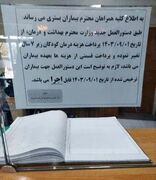 به اطلاع کلیه همراهان محترم بیماران بستری می رساند
طبق دستورالعمل جدید وزارت محترم بهداشت و درمان، از
تاریخ ۱۴۰۳/۰۹/۰۱ پرداخت هزینه درمان کودکان زیر ۷ سال
تغییر نموده و پرداخت قسمتی از هزینه ها بعهده بیماران
می باشد، لازم به توضیح است این دستورالعمل جهت بیماران
ترخیص شده از تاریخ ۱۴۰۳/۰۹/۰۱ قابل اجرا می باشد.